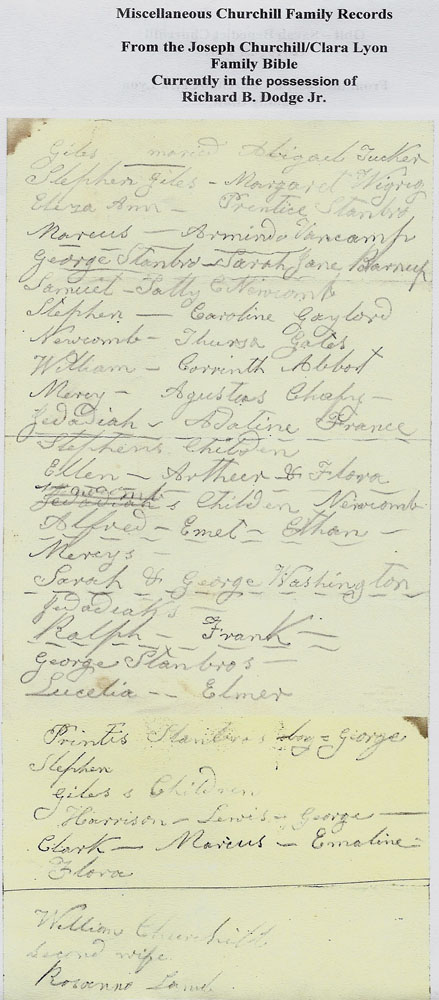 Miscellaneous Churchill Family Records
From the Joseph Churchill/Clara Lyon
Family Bible
Currently in the possession of
Richard B. Dodge Jr.
Giles maried Abigael Tucker
Stephen Giles - Margaret
Eliza Ann - Prentice Stanbro
Marcus - Arminda Vancamp
George Stanbro - Sarah Jane
Samuel - Sally C Newcomb
Stephen - Caroline Gaylord
Newcomb - Thursa Gates
William - Corrinth Abbot
Mercy - Agustus Chafy -
Jedadiah - Adaline France
Stephens Childen
Ellen - Artheer & Flora
Jedadiah s Childen Newcomb
Alfred - Emet - Ethan -
Mercys -
Sarah & George Washington
Jedadiah's -
Ralph - Frank -
George Stanbros -
Lucelia -- Elmer
Printis Stanbros boy = George
Stephen
Giles s Children
Harrison - Lewis - George -
Clark - Marcus - Emaline =
Flora
William Churchill
second wife
Rosanna